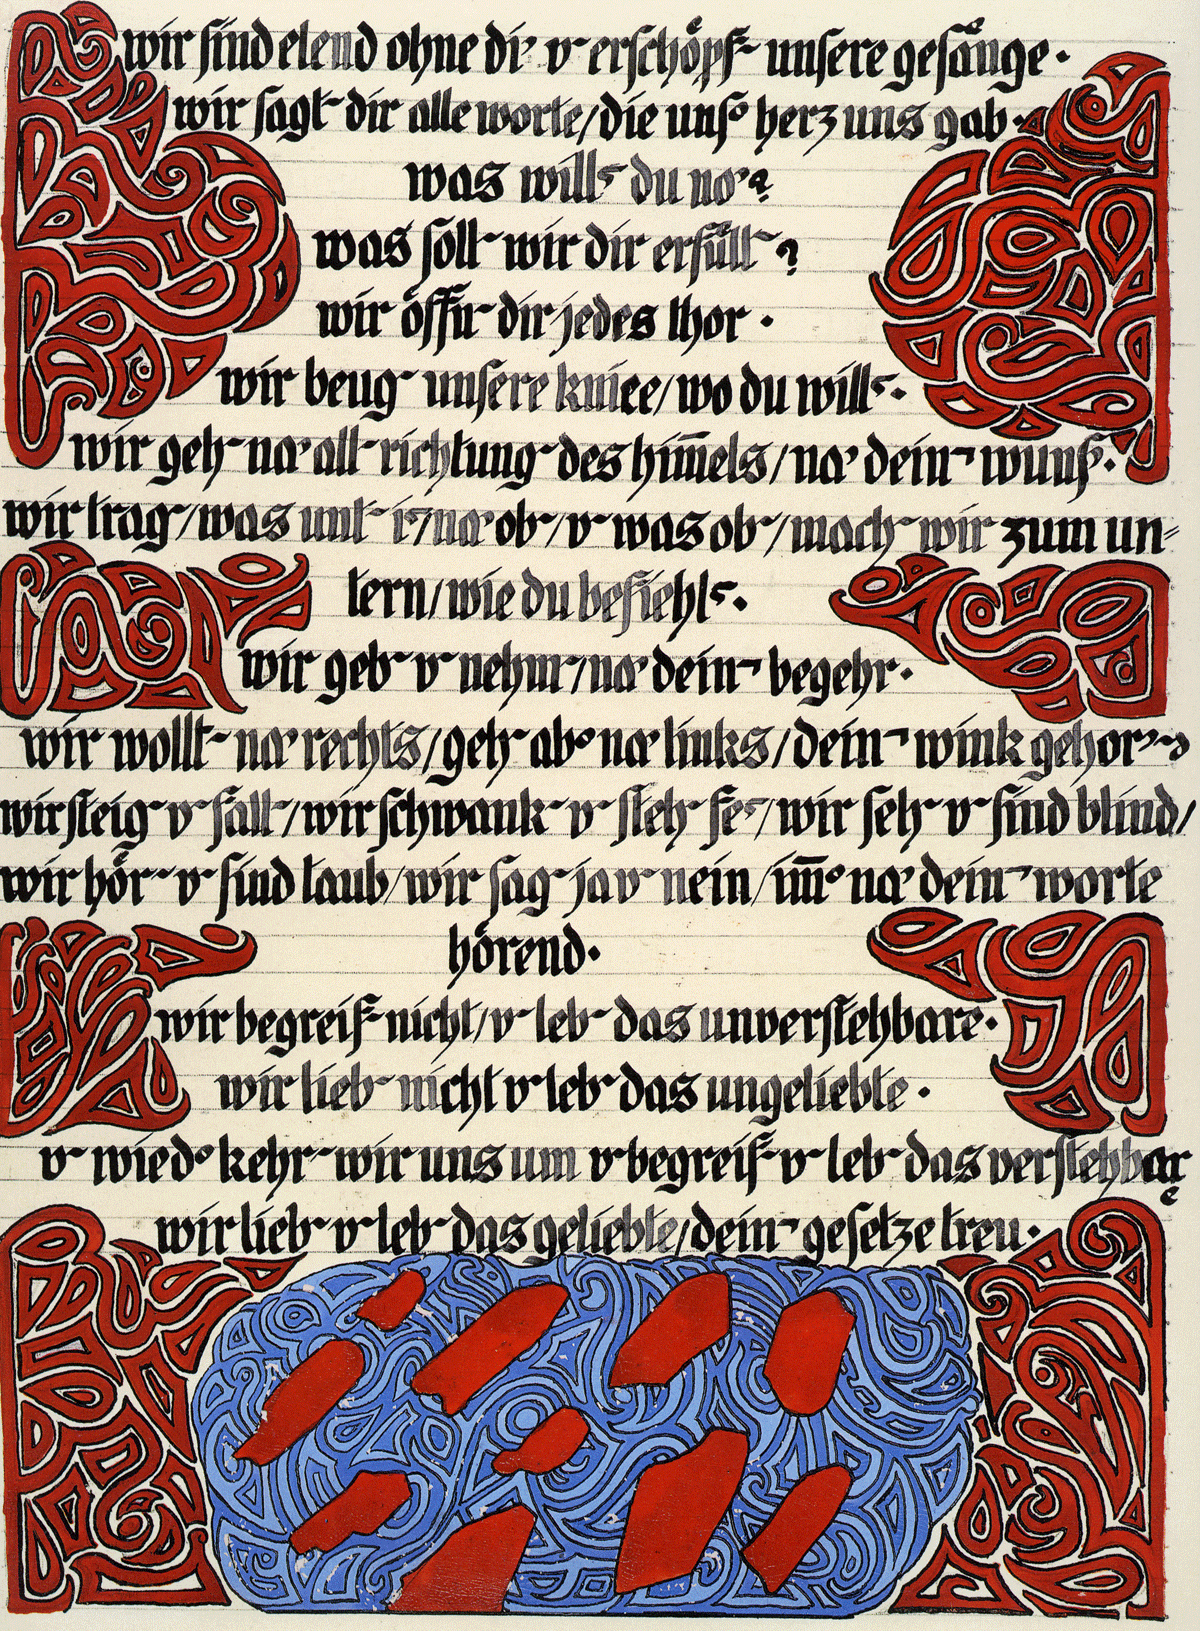 wir sind elend ohne di' v~ erschöpf~ unsere gesänge·
wir sagt~ dir alle worte/die uns° herz uns gab·
was wills~ du no'?
was soll~ wir dir erfüll~?
wir öffn~ dir jedes thor·
wir beug~ unsere kniee/wo du wills~·
wir geh~ na' all~ richtung~ des him̄els/na' dein¬ wunsch·
wir trag~/was unt~ is~/na' ob~/v~ was ob~/mach~ wir zum un=
tern/wie du befiehls~·
wir geb~ v~ nehm~/na' dein¬ begehr·
wir wollt~ na' rechts/geh~ ab° na' links/dein¬ wink gehor~
wir steig~ v~ fall~/wir schwank~ v~ steh~ fes~/wir seh~ v~ sind blind/
wir hör~ v~ sind taub/wir sag~ ja v~ nein/im̄° na' dein¬ worte
hörend·
wir begreif~ nicht/v~ leb~ das unverstehbare·
wir lieb~ nicht v~ leb~ das ungeliebte·
v~ wied° kehr~ wir uns um v~ begreif~ v~ leb~ das verstehbare
wir lieb~ v~ leb~ das geliebte/dein¬ gesetze treu·